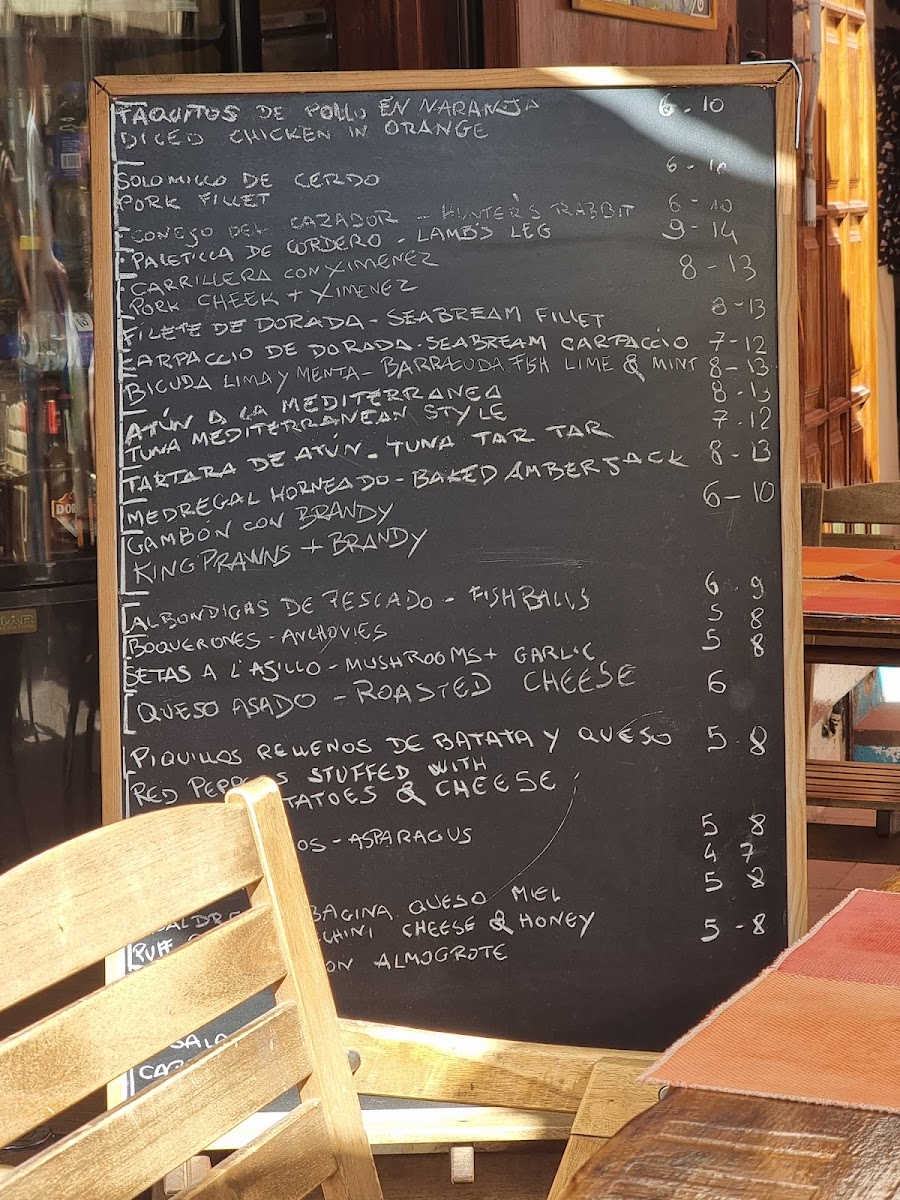 TAQUITOS DE POLLO EN NARANJA 6 - 10
DICED CHICKEN IN ORANGE
SOLOMILLO DE CERDO 6 - 10
PORK FILLET
CONEJO DEL CAZADOR - HUNTER'S RABBIT 6 - 10
PALETILLA DE CORDERO - LAMBS LEG 9 - 14
CARRILLERA CON XIMENEZ 8 - 13
PORK CHEEK + XIMENEZ
FILETE DE DORADA - SEABREAM FILLET 8 - 13
CARPACCIO DE DORADA - SEABREAM CARPACCIO 7 - 12
BICUDA LIMA Y MENTA - BARRACUDA FISH LIME & MINT 8 - 13
ATÚN A LA MEDITERRANEA 8 - 13
TUNA MEDITERRANEAN STYLE
TARTARA DE ATÚN - TUNA TAR TAR 7 - 12
MEDREGAL HORNEADO - BAKED AMBERJACK 8 - 13
GAMBÓN CON BRANDY 6 - 10
KING PRAWNS + BRANDY
ALBONDIGAS DE PESCADO - FISH BALLS 6 9
BOQUERONES - ANCHOVIES 5 8
SETAS A L'ASILLO - MUSHROOMS + GARLIC 5 8
QUESO ASADO - ROASTED CHEESE 6
PIQUILLOS RELLENOS DE BATATA Y QUESO 5 - 8
RED PEPP S STUFFED WITH
TATOES & CHEESE
OS - ASPARAGUS 5 8
4 7
5 8
BAGINA QUESO MIEL
PUFF CHINI CHEESE & HONEY 5 - 8
ON ALMOGROTE
SALA